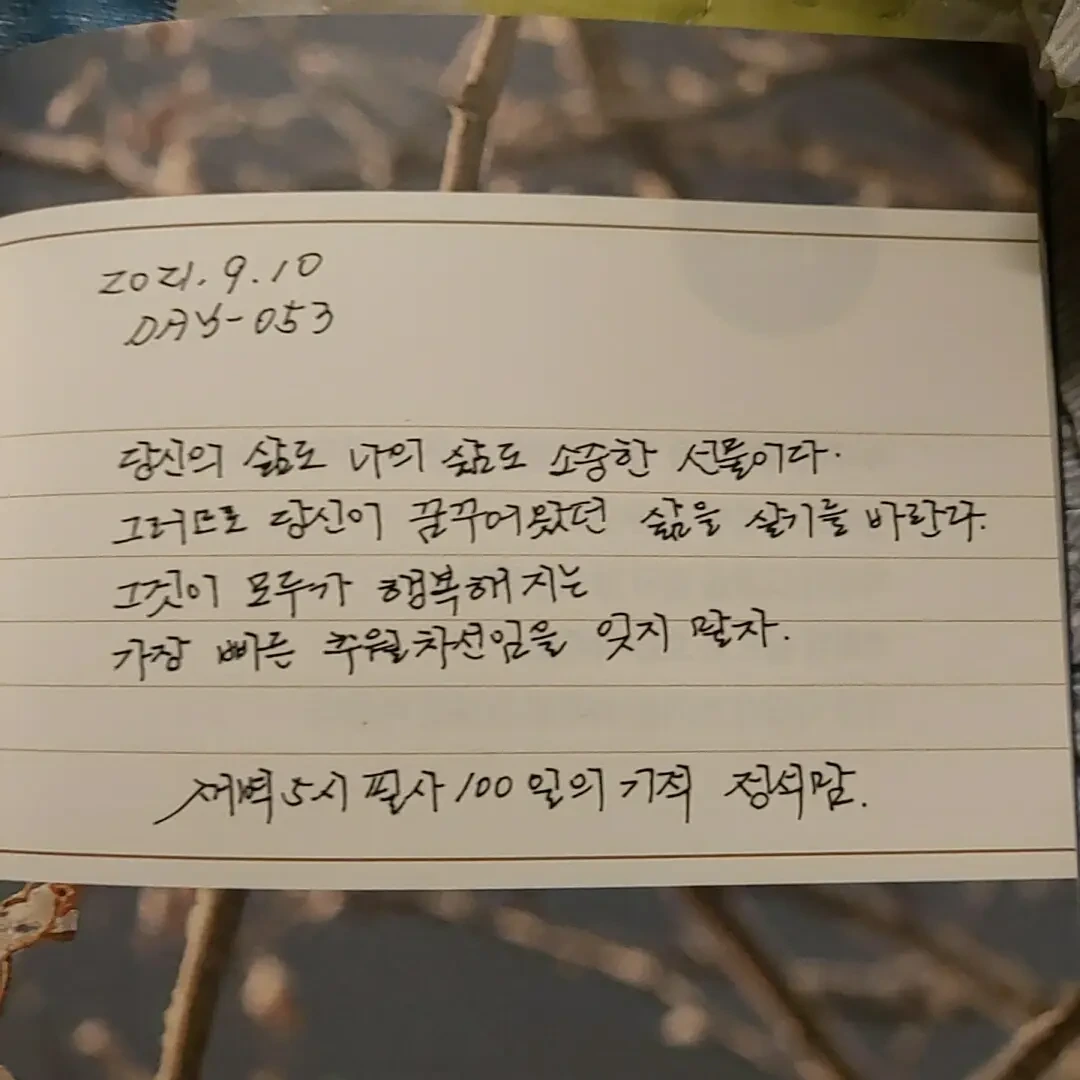 2021.9.10
DAY-053
당신의 삶도 나의 삶도 소중한 선물이다.
그러므로 당신이 꿈꾸어왔던 삶을 살기를 바란다.
그것이 모두가 행복해지는
가장 빠른 추월차선임을 잊지 말자.
새벽5시 필사 100일의 기적 정석맘.